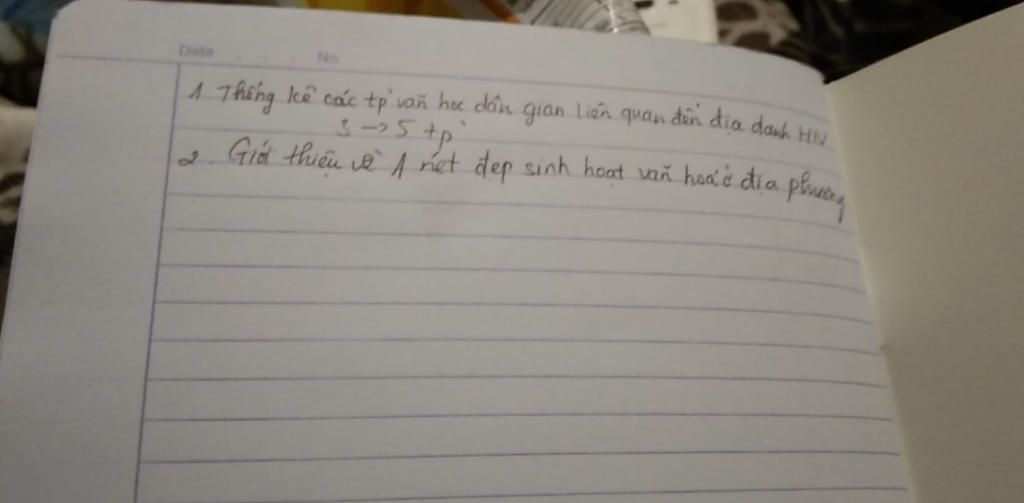 Date . . . No
1. Thống kê các tp' văn học dân gian liên quan đến địa danh HN
3 → 5 tp'
2. Giới thiệu về 1 nét đẹp sinh hoạt văn hoá ở địa phương